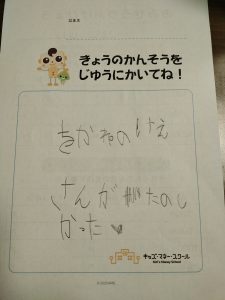 なまえ
きょうのかんそうを
じゆうにかいてね！
おかねのけえ
さんが たのし
かった
キッズ・マネー・スクール
Kid's Money School